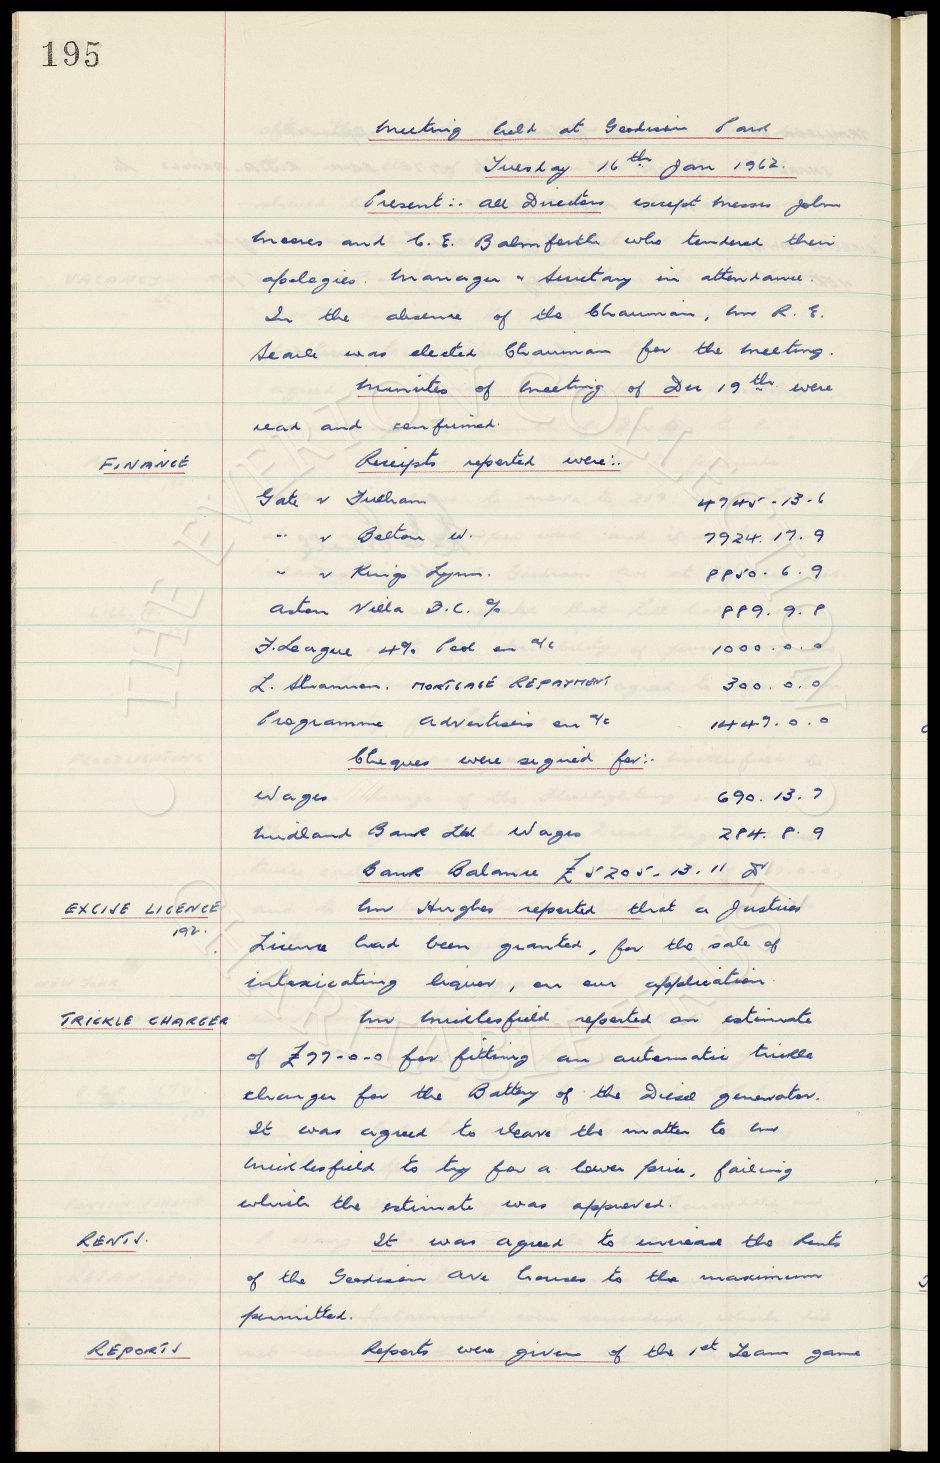 195
Meeting held at Goodison Park
Tuesday 16th Jan 1962.
Present:. All Directors except Messrs John
Moores and C. E. Balmforth who tendered their
apologies. Manager " Secretary in attendance.
In the absence of the Chairman, Mr R. E.
Searle was elected Chairman for the meeting.
Minutes of Meeting of Dec 19th were
read and confirmed.
FINANCE Receipts reported were:.
Gate v Fulham 4745-13-6
" v Bolton W. 7924.17.9
" v Kings Lynn. 8850.6.9
Aston Villa F.C. % 889.9.8
F. League 4% Pool on a/c 1000.0.0
L. Shannon. MORTGAGE REPAYMENT 300.0.0
Programme Advertisers on a/c 1447.0.0
Cheques were signed for:.
Wages 690.13.7
Midland Bank Ltd Wages 284.8.9
Bank Balance £5205-13-11
EXCISE LICENCE Mr Hughes reported that a Justices
192.
License had been granted, for the sale of
intoxicating liquor, on our application.
TRICKLE CHARGER Mr Micklesfield reported an estimate
of £77-0-0 for fitting an automatic trickle
charger for the Battery of the Diesel generator.
It was agreed to leave the matter to Mr
Micklesfield to try for a lower price, failing
which the estimate was approved.
RENTS. It was agreed to increase the Rents
of the Goodison Ave houses to the maximum
permitted.
REPORTS Reports were given of the 1st Team game
THE EVERTON COLLECTION
CHARITABLE TRUST